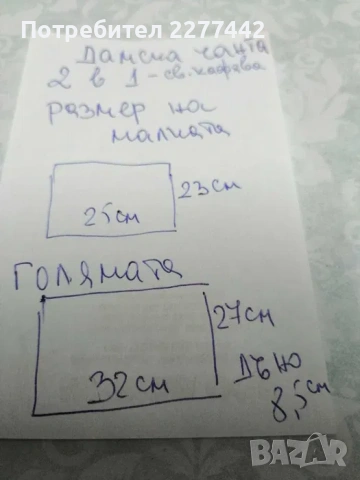 Потребител 2277442
Дамска чанта
2 в 1 - св. кафява
размер на
малката
23 см
25 см
голямата
27 см
32 см
дъно
8,5 см
BAZAR